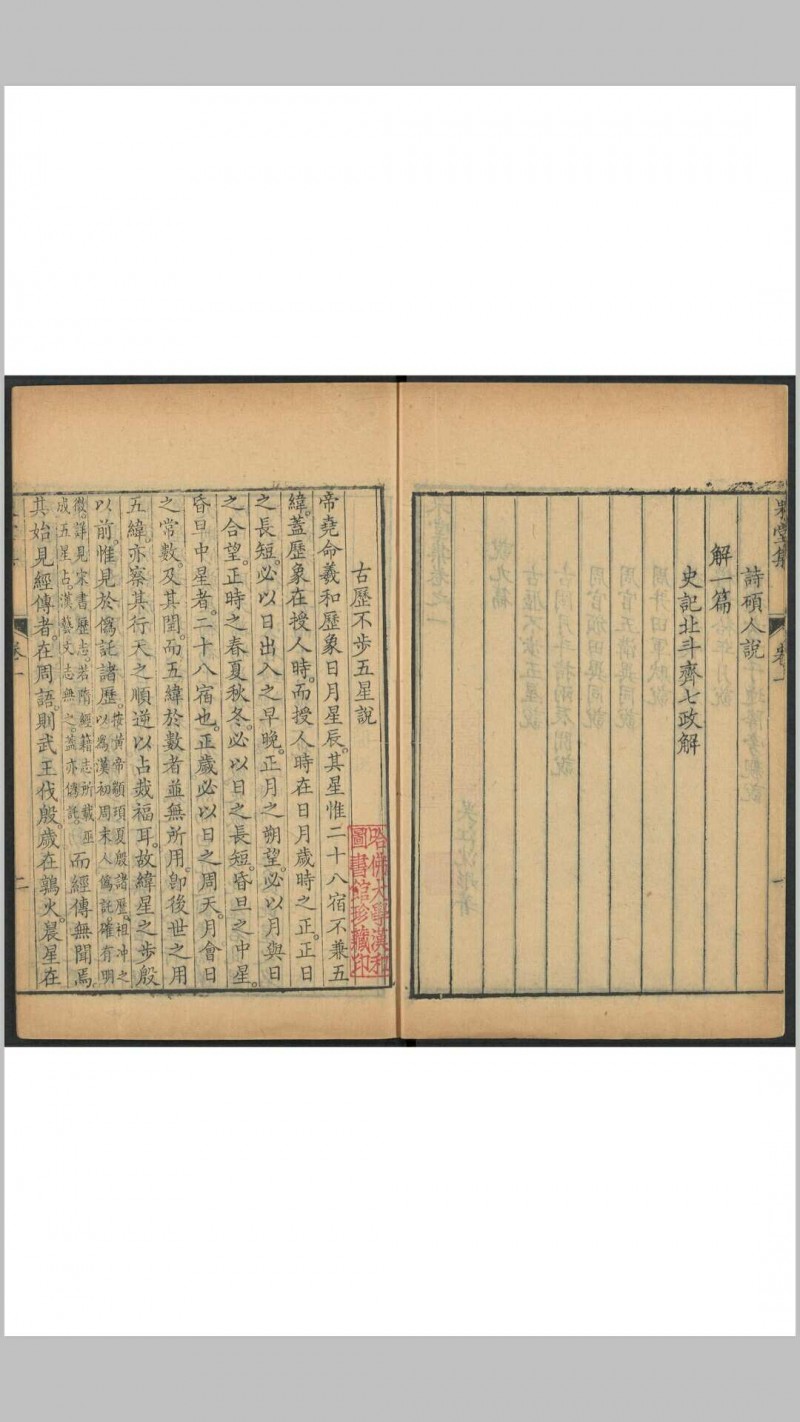 果堂集 卷一 一
詩碩人說
解一篇
史記北斗齊七政解
古歷不步五星說
帝堯命羲和歷象日月星辰。其星惟二十八宿不兼五
緯。蓋歷象在授人時。而授人時在日月歲時之正。正日
之長短。必以日出入之早晚。正月之朔望。必以月與日
之合望。正時之春夏秋冬。必以日之長短。昏旦之中星。
昏旦中星者。二十八宿也。正歲必以日之周天。月會日
之常數。及其閏。而五緯於數者並無所用。卽後世之用
五緯。亦察其行天之順逆以占烖福耳。故緯星之步殷
以前。惟見於僞託諸歷。
按黃帝顓頊夏殷諸歷。祖冲之
以爲漢初周末人僞託確有明
徵。詳見宋書歷志。若隋經籍志所載巫
咸五星占。漢藝文志無之。蓋亦僞託。
而經傳無聞焉。
其始見經傳者。在周語。則武王伐殷。歲在鶉火。晨星在
卷一
二
哈佛大學漢和
圖書館珍藏印